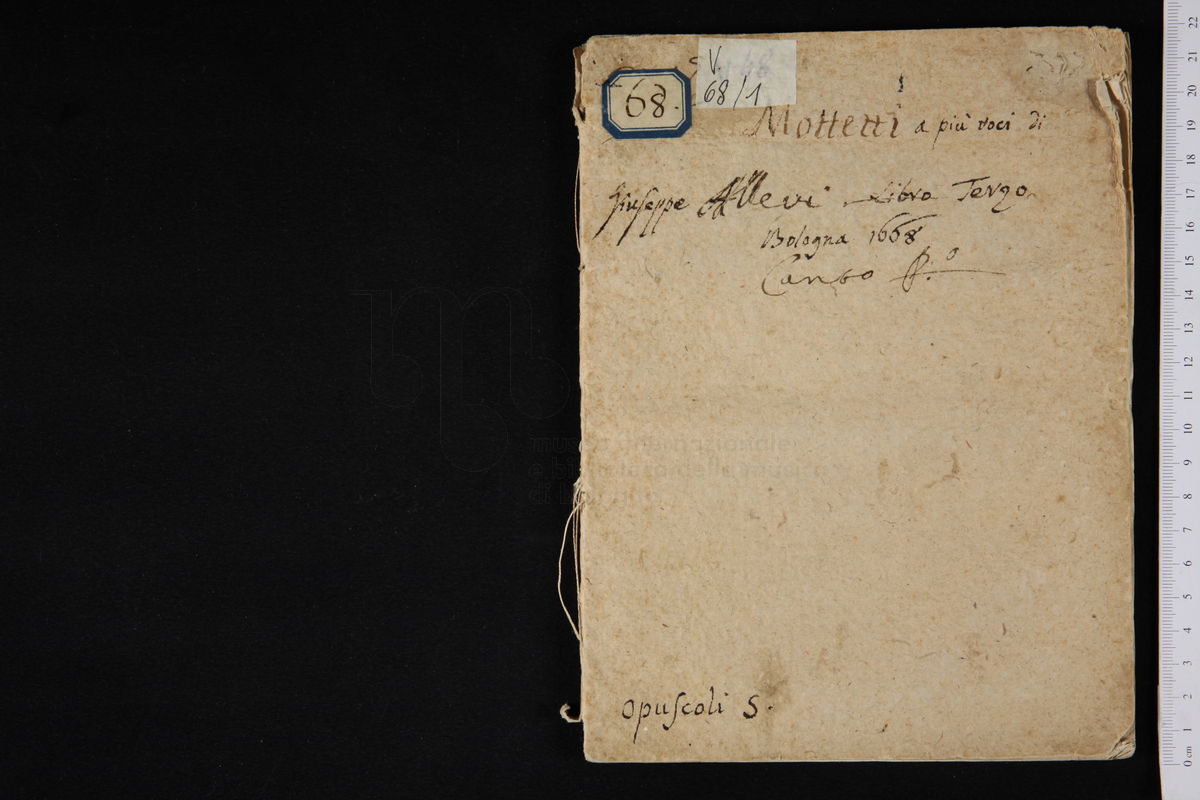 V.
68/1
68.
Mottetti a più voci di
Giuseppe Allevi Libro Terzo
Bologna 1668
Canto P.º
opuscoli 5.
museo internazionale
e biblioteca della musica
di bologna
0 cm 1 2 3 4 5 6 7 8 9 10 11 12 13 14 15 16 17 18 19 20 21 22